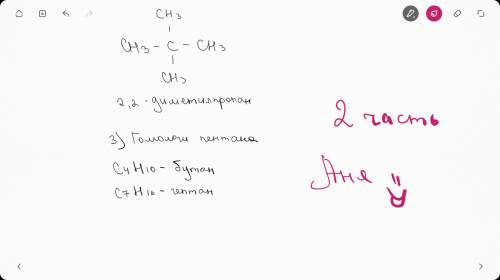 CH3
CH3 - C - CH3
CH3
2,2-диметилпропан
3) Гомологи пентана
C4H10 - бутан
C7H16 - гептан
2 часть
Аня